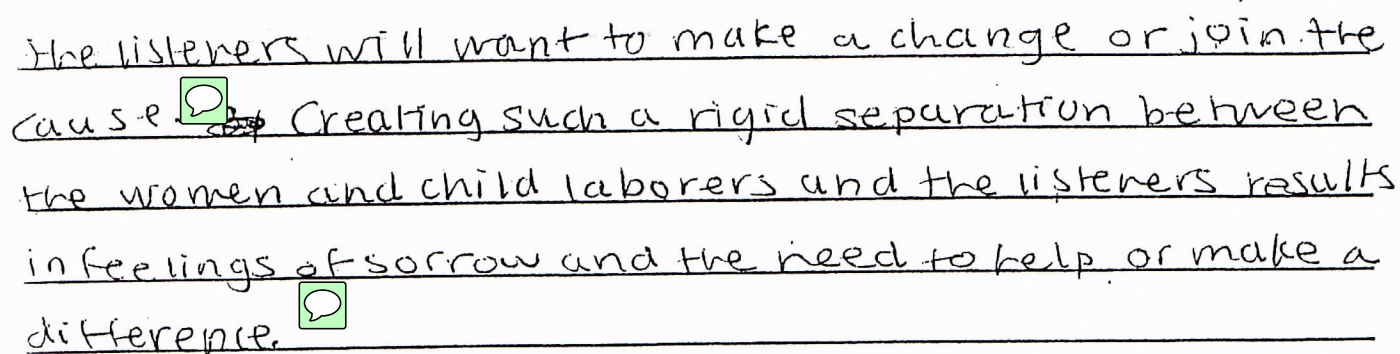 the listeners will want to make a change or join the
cause. Creating such a rigid separation between
the women and child laborers and the listeners results
in feelings of sorrow and the need to help or make a
difference.